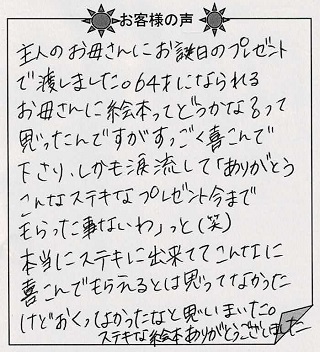 お客様の声
主人のお母さんにお誕日のプレゼント
で渡しました。64才になられる
お母さんに絵本ってどうかなぁって
思ったんですがすっごく喜こんで
下さり、しかも涙流して「ありがとう
こんなステキなプレゼント今まで
もらった事ないわ」っと(笑)
本当にステキに出来ててこんなに
喜こんでもらえるとは思ってなかった
けどおくってよかったなと思いました。
ステキな絵本ありがとうございました